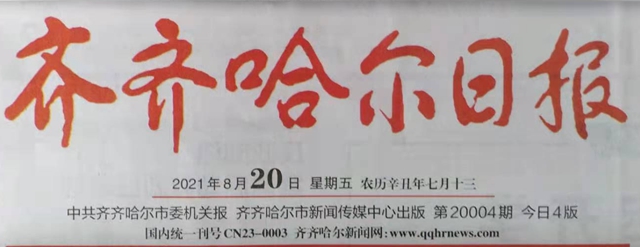 齐齐哈尔日报
2021年8月20日 星期五 农历辛丑年七月十三
中共齐齐哈尔市委机关报 齐齐哈尔市新闻传媒中心出版 第20004期 今日4版
国内统一刊号CN23-0003 齐齐哈尔新闻网:www.qqhrnews.com